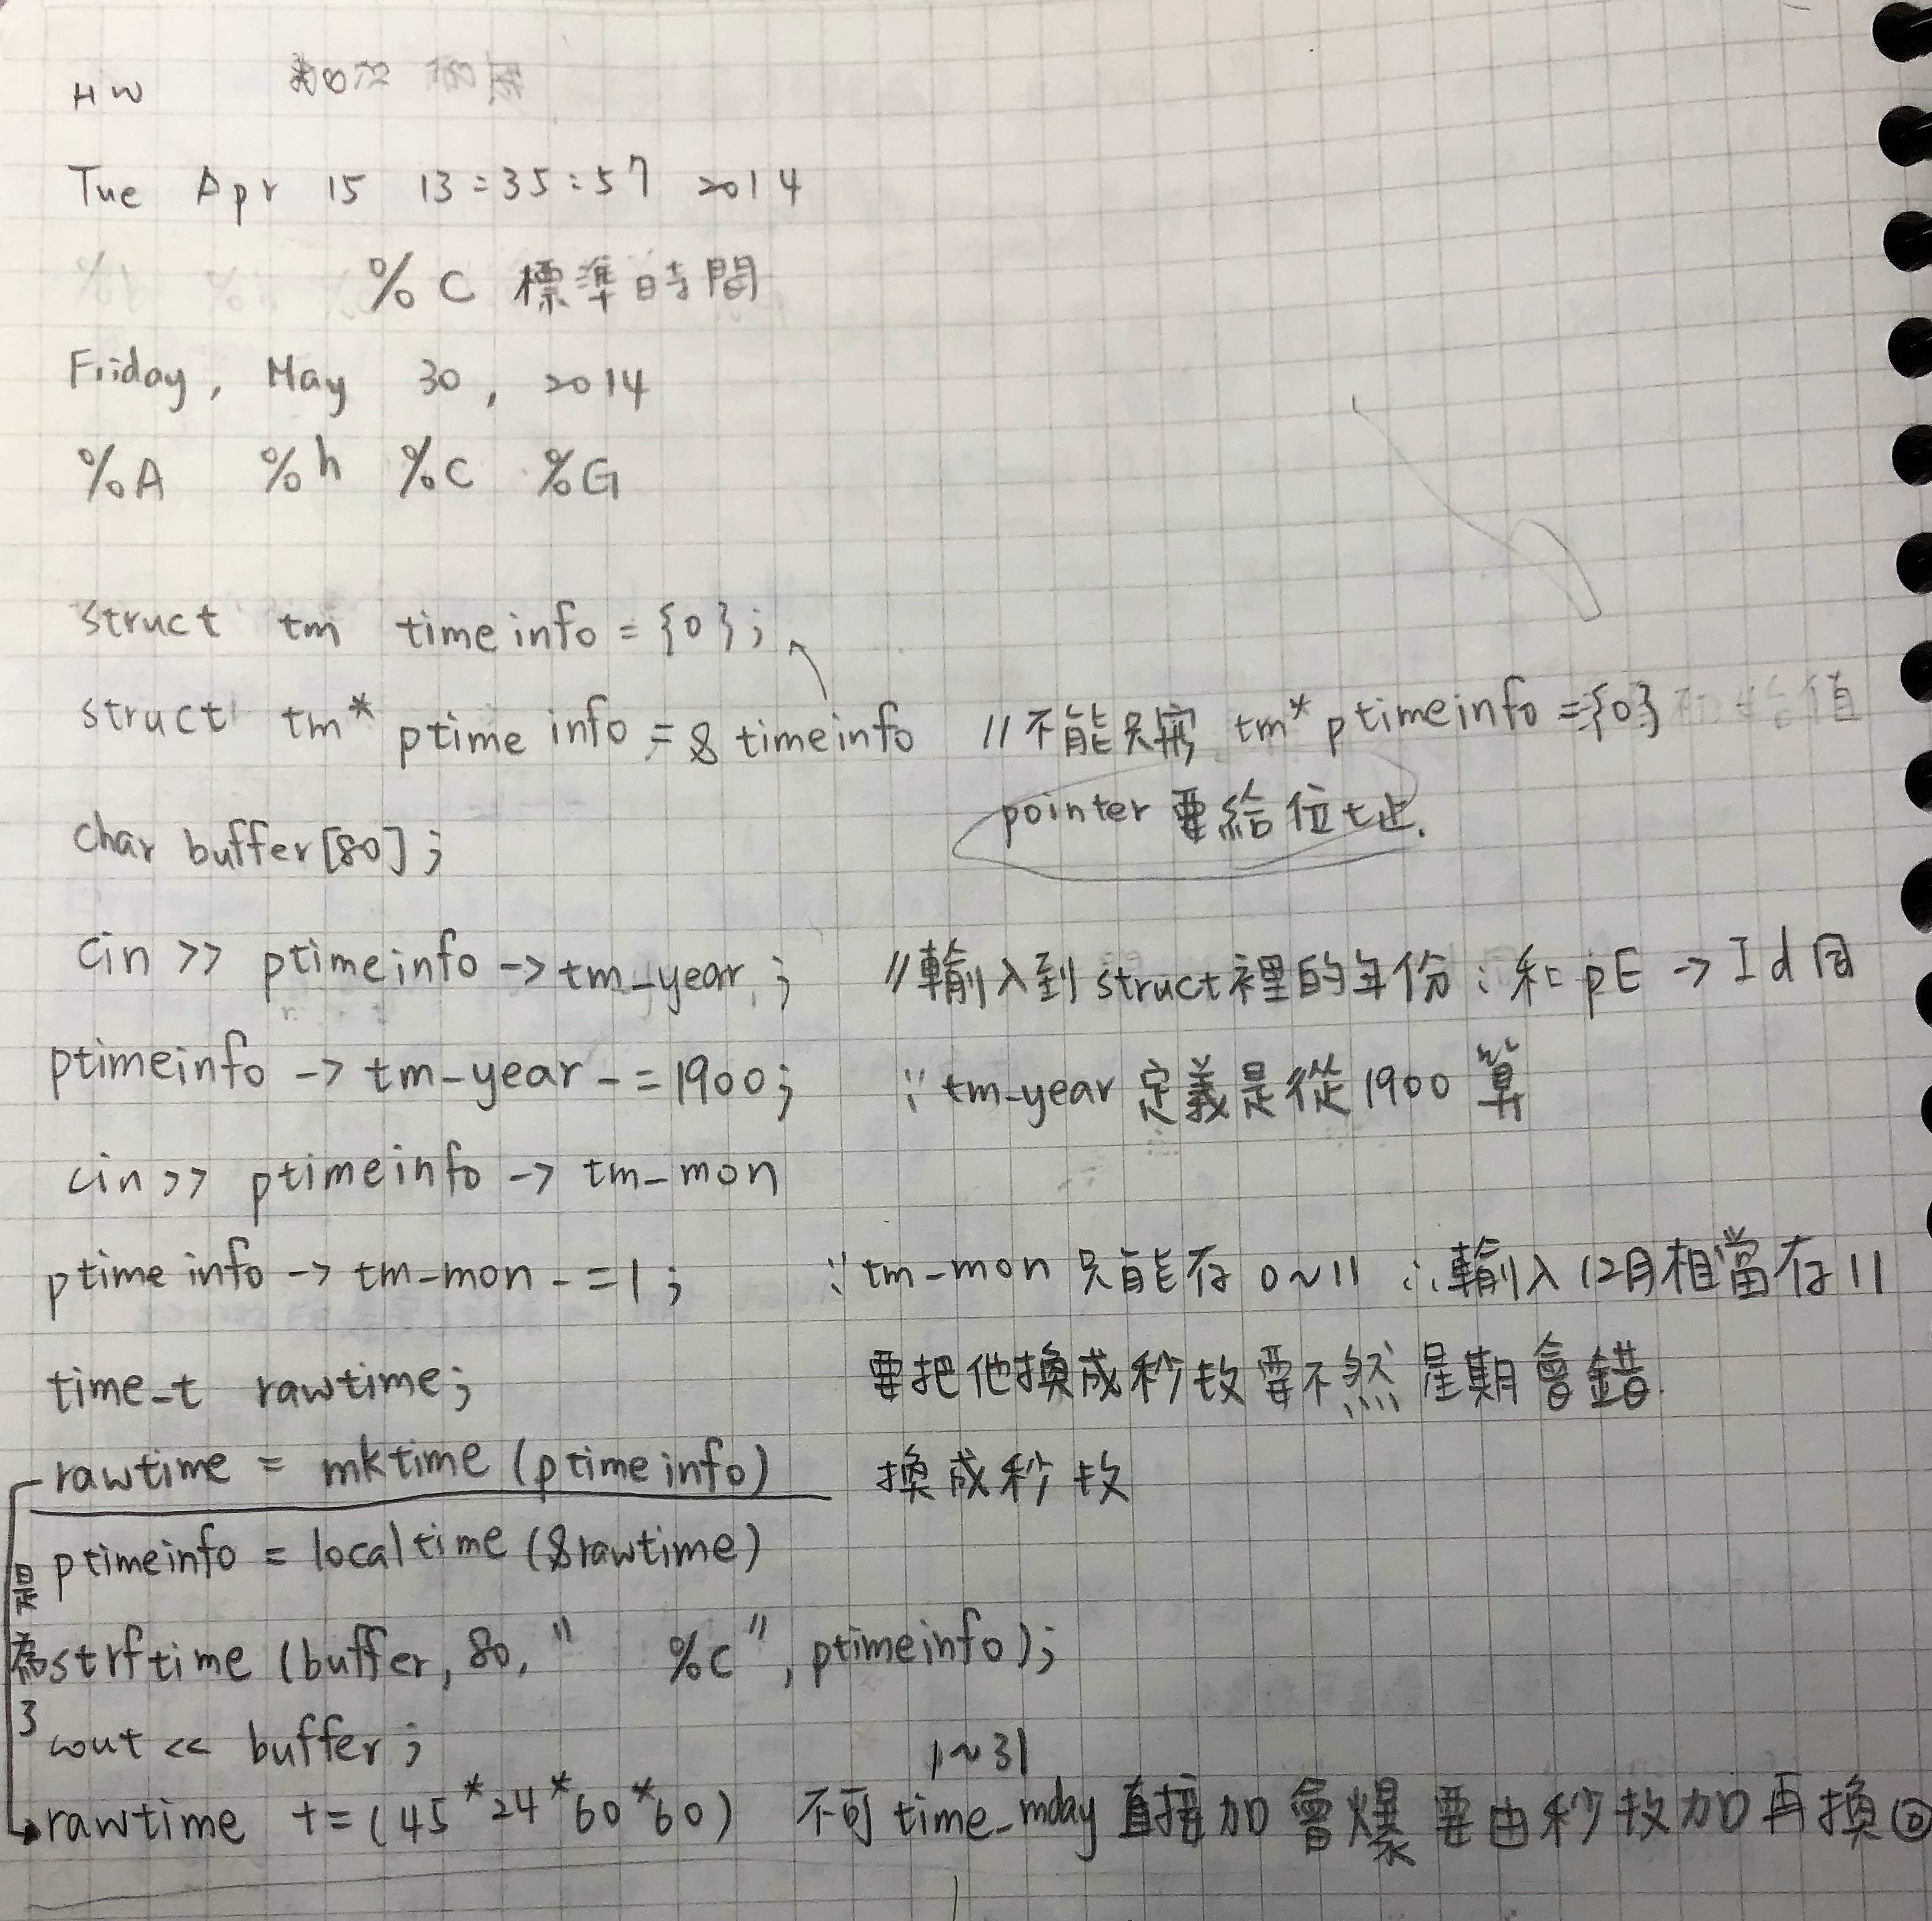 HW
Tue Apr 15 13:35:57 2014
%C 標準時間
Friday, May 30, 2014
%A %h %C %G
struct tm timeinfo = {0};
struct tm* ptimeinfo = & timeinfo //不能只寫 tm* ptimeinfo = {0} 初始值
pointer 要給位址.
char buffer[80];
cin >> ptimeinfo -> tm_year; //輸入到 struct 裡的年份 ; 和 pE -> Id 同
ptimeinfo -> tm-year -= 1900; ∵ tm-year 定義是從 1900 算
cin >> ptimeinfo -> tm-mon
ptimeinfo -> tm-mon -= 1; ∵ tm-mon 只能存 0~11 ∴ 輸入 12月相當存 11
time_t rawtime; 要把他換成秒数要不然星期會錯.
rawtime = mktime (ptimeinfo) 換成秒数
ptimeinfo = localtime (&rawtime)
strftime (buffer, 80, " %c", ptimeinfo);
cout << buffer;
是為了
1~31
rawtime += (45*24*60*60) 不可 time_mday 直接加會爆 要由秒数加再換回